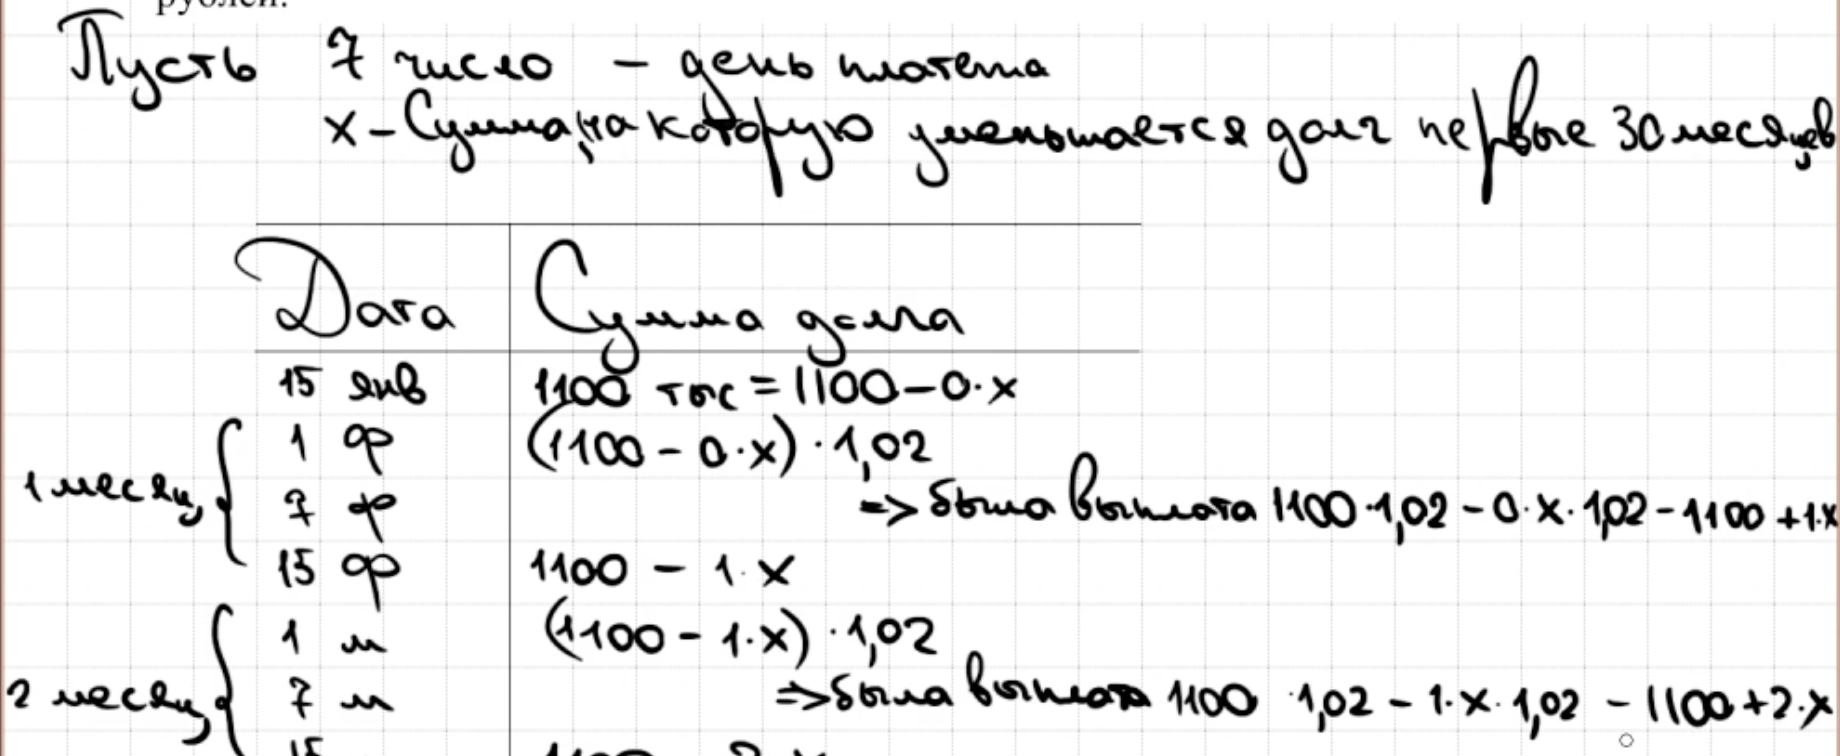 рублей.
Пусть 7 число – день платежа
x – Сумма, на которую уменьшается долг первые 30 месяцев
Дата Сумма долга
15 янв 1100 тыс = 1100 – 0·x
1 ф (1100 – 0·x)·1,02
1 месяц 7 ф => была выплата 1100·1,02 – 0·x·1,02 – 1100 + 1·x
15 ф 1100 – 1·x
1 м (1100 – 1·x)·1,02
2 месяц 7 м => была выплата 1100·1,02 – 1·x·1,02 – 1100 + 2·x
15 1100 – 2·x